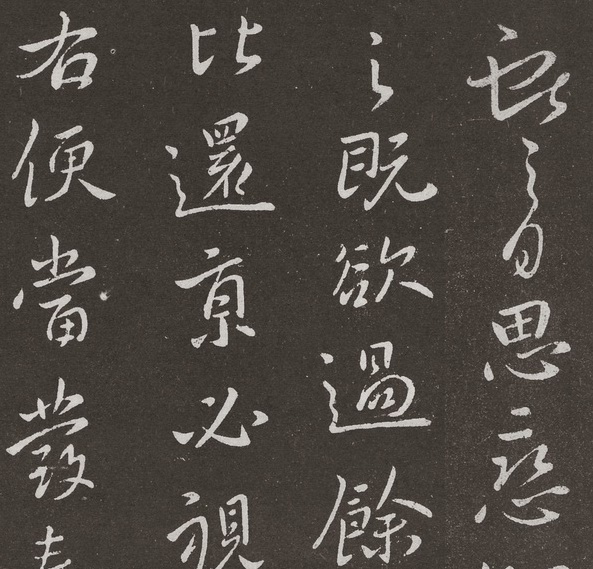 之日思戀
之既欲過餘
比還京必視
右便當發